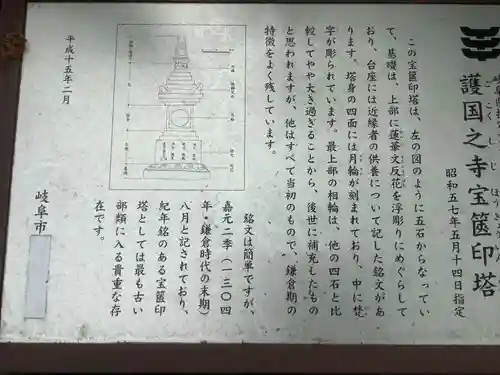 護国之寺宝篋印塔
ごこくしじほう
昭和五七年五月十四日指定
この宝篋印塔は、左の図のように五石からなってい
て、基礎は、上部に蓮華文反花を浮彫りにめぐらして
おり、台座には近縁者の供養について記した銘文があ
ります。塔身の四面には月輪が刻まれており、中に梵
字が彫られています。最上部の相輪は、他の四石と比
較してやや大き過ぎることから、後世に補充したもの
と思われますが、他はすべて当初のもので、鎌倉期の
特徴をよく残しています。
銘文は簡単ですが、
嘉元二季(一三〇四
年・鎌倉時代の末期)
八月と記されており、
紀年銘のある宝篋印
塔としては最も古い
部類に入る貴重な存
在です。
平成十五年二月
岐阜市